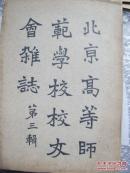 北京高等師
範學校校友
會雜誌
第三輯